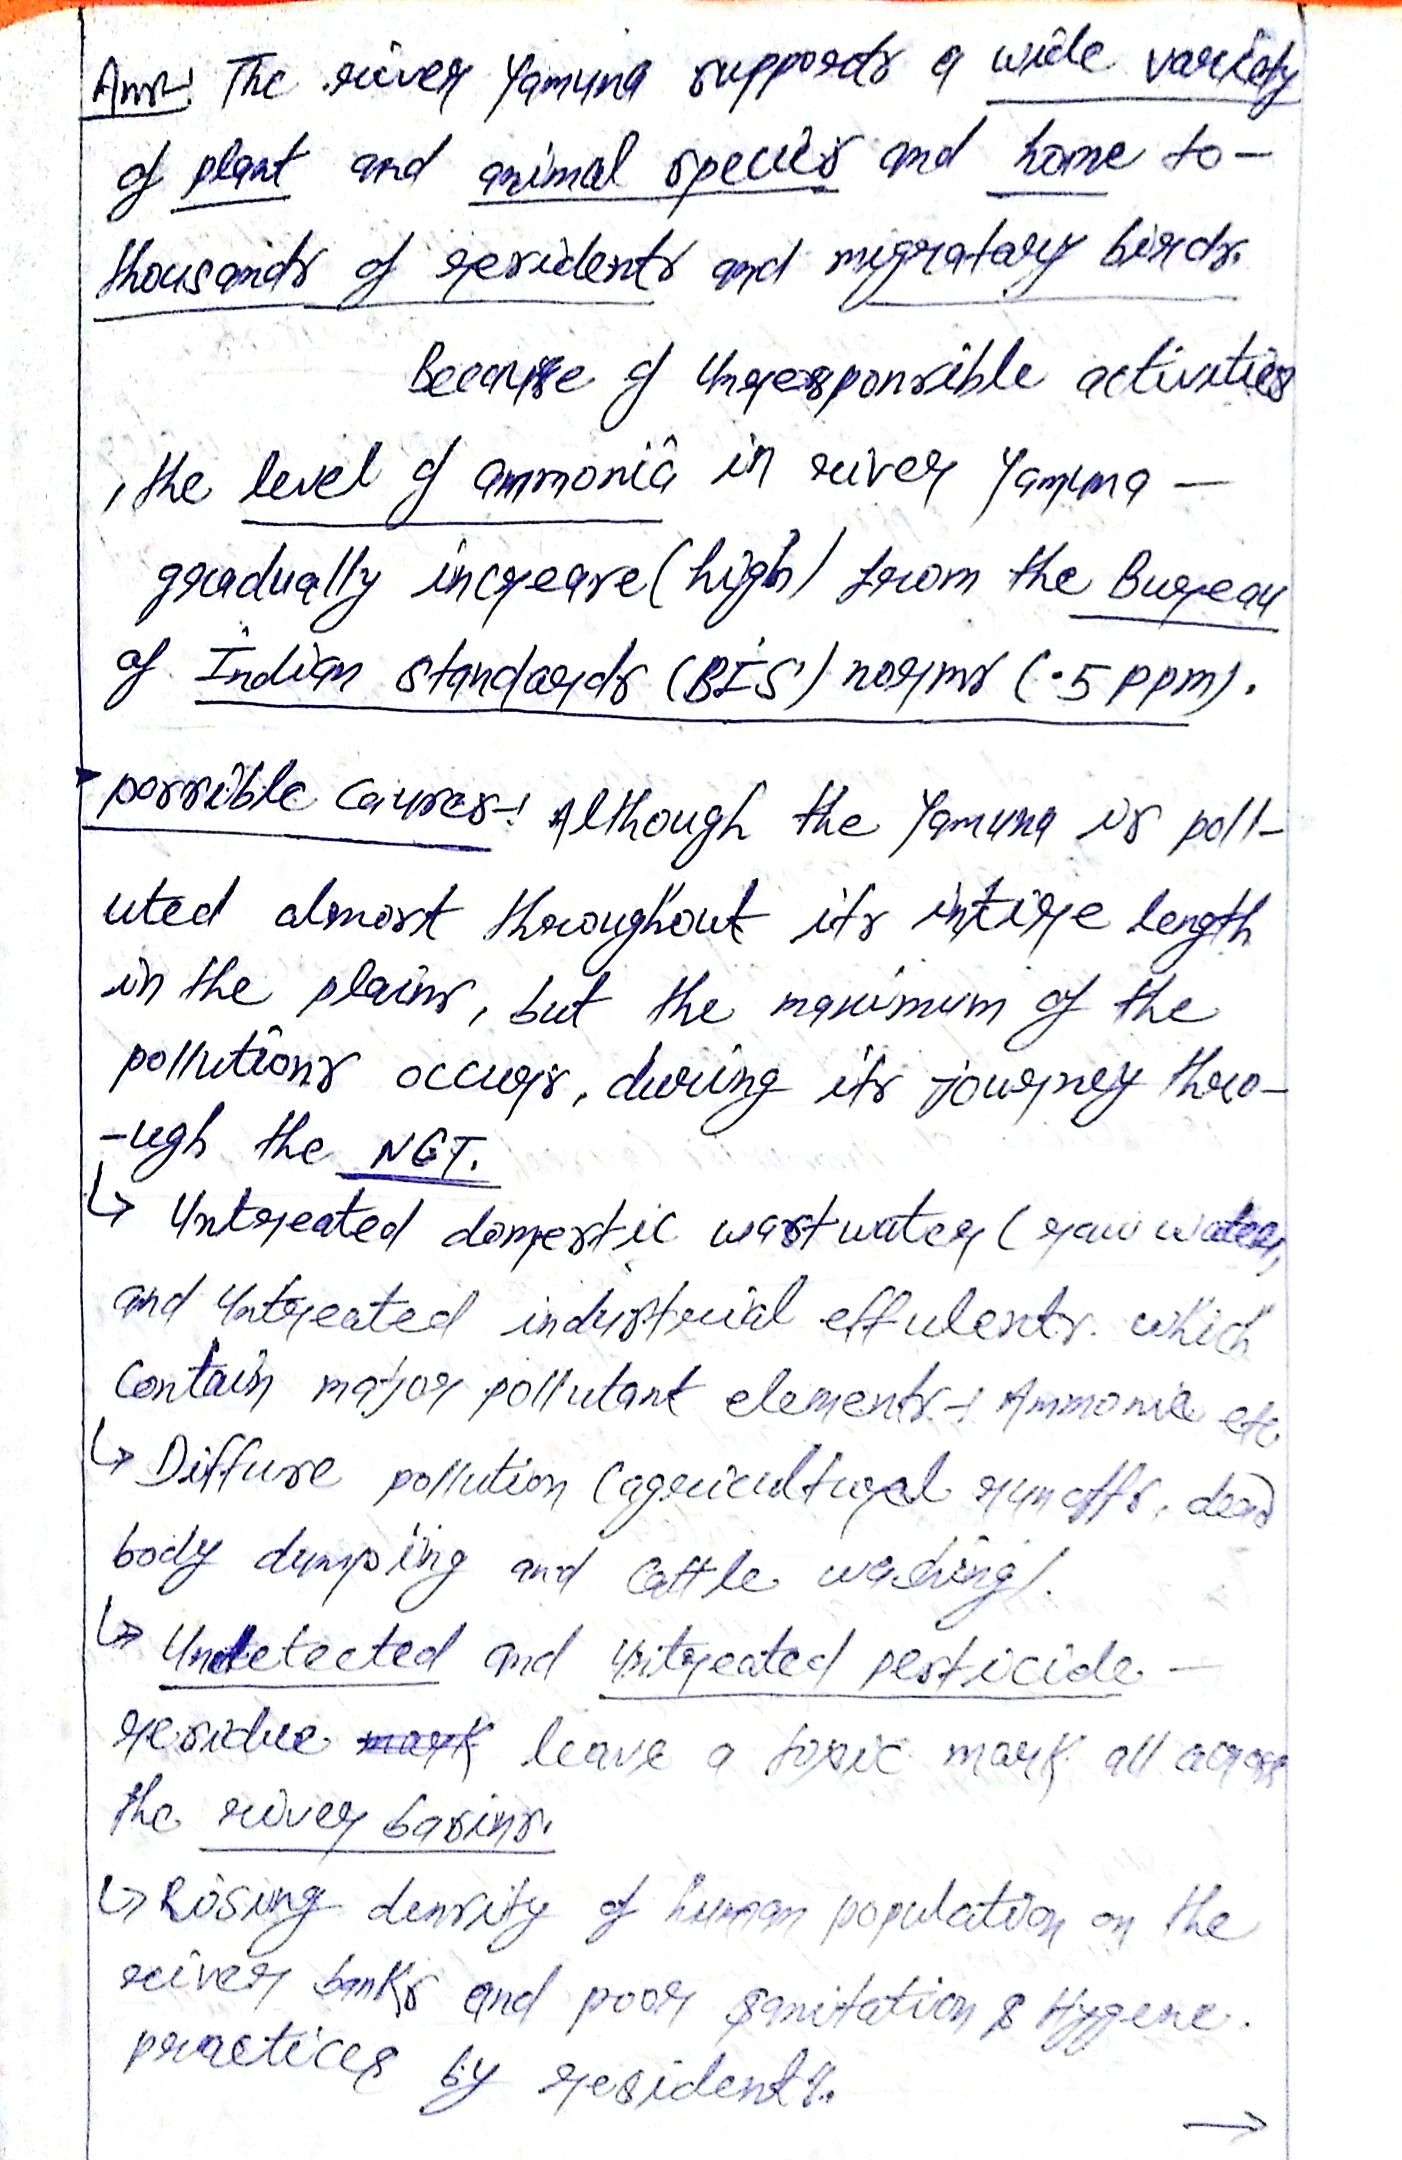 Ans:- The river Yamuna supports a wide variety
of plant and animal species and home to -
thousands of residents and migratory birds.
Because of Unresponsible activities
, the level of ammonia in river Yamuna -
gradually increase (high) from the Bureau
of Indian Standards (BIS) norms (.5 ppm).
possible causes:- Although the Yamuna is poll-
uted almost throughout its intire length
in the plains, but the maximum of the
pollutions occurs, during its journey thro-
-ugh the NCT.
↳ Untreated domestic wastwater (raw water,
and Untreated industrial effulents. which
contain major pollutant elements:- Ammonia etc
↳ Diffuse pollution (agricultural runoffs, dead
body dumping and cattle washing).
↳ Undetected and Untreated pesticide -
residue mark leave a toxic mark all across
the river basins.
↳ Rising density of human population on the
river banks and poor sanitation & Hygene.
practices by residents.
→